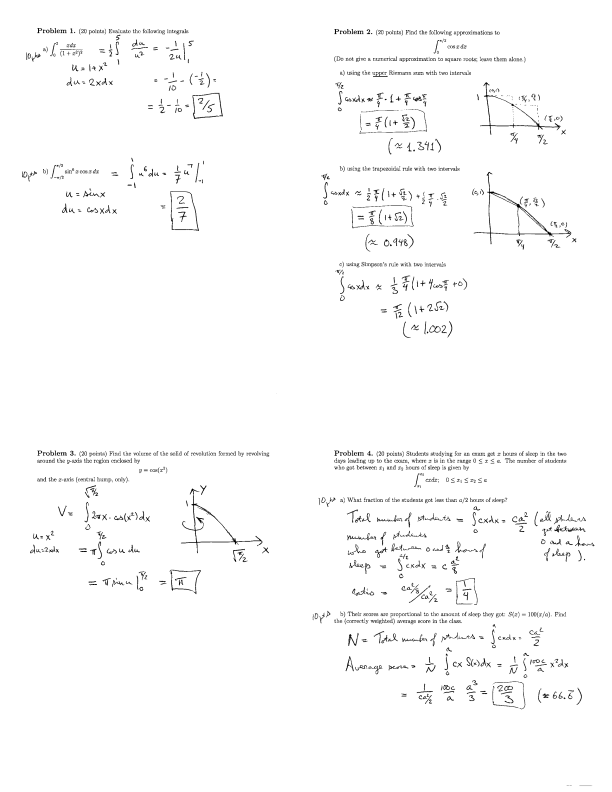 Problem 1. (20 points) Evaluate the following integrals
10 pts a) ∫₀² xdx/(1 + x²)² = ½ ∫₁⁵ du/u² = -1/2u |₁⁵
u = 1+x²
du = 2xdx = -1/10 - (-½) =
= ½ - 1/10 = 2/5
10 pts b) ∫_{-π/2}^{π/2} sin⁶ x cos x dx = ∫₋₁¹ u⁶ du = 1/7 u⁷ |₋₁¹
u = sinx
du = cosxdx = 2/7
Problem 2. (20 points) Find the following approximations to
∫₀^{π/2} cos x dx
(Do not give a numerical approximation to square roots; leave them alone.)
a) using the upper Riemann sum with two intervals
∫₀^{π/2} cosxdx ≈ π/4 · 1 + π/4 cos π/4
= π/4 (1 + √2/2)
(≈ 1.341)
(0,1)
1
(π/2, 0)
π/4 π/2 x
b) using the trapezoidal rule with two intervals
∫₀^{π/2} cosxdx ≈ ½ π/4 (1 + √2/2) + ½ π/4 · √2/2
= π/8 (1+√2)
(≈ 0.948)
(0,1)
(π/4, √2/2)
(π/2, 0)
π/4 π/2 x
c) using Simpson's rule with two intervals
∫₀^{π/2} cosxdx ≈ 1/3 π/4 (1 + 4cos π/4 + 0)
= π/12 (1 + 2√2)
(≈ 1.002)
Problem 3. (20 points) Find the volume of the solid of revolution formed by revolving
around the y-axis the region enclosed by
y = cos(x²)
and the x-axis (central hump, only).
V = ∫₀^{√π/2} 2πx · cos(x²) dx
u = x²
du = 2xdx = π ∫₀^{π/2} cos u du
= π sin u |₀^{π/2} = π
Y
1
√π/2 X
Problem 4. (20 points) Students studying for an exam get x hours of sleep in the two
days leading up to the exam, where x is in the range 0 ≤ x ≤ a. The number of students
who got between x₁ and x₂ hours of sleep is given by
∫_{x₁}^{x₂} cxdx; 0 ≤ x₁ ≤ x₂ ≤ a
10 pts a) What fraction of the students got less than a/2 hours of sleep?
Total number of students = ∫₀ᵃ cxdx = ca²/2 (all students got between 0 and a hours of sleep).
number of students
who got between 0 and a/2 hours of
sleep = ∫₀^{a/2} cxdx = c a²/8
ratio = ca²/8 / ca²/2 = 1/4
10 pts b) Their scores are proportional to the amount of sleep they got: S(x) = 100(x/a). Find
the (correctly weighted) average score in the class.
N = Total number of students = ∫₀ᵃ cxdx = ca²/2
Average score = 1/N ∫₀ᵃ cx S(x)dx = 1/N ∫₀ᵃ 100c/a x² dx
= 1/(ca²/2) 100c/a a³/3 = 200/3 (≈ 66.6̄)